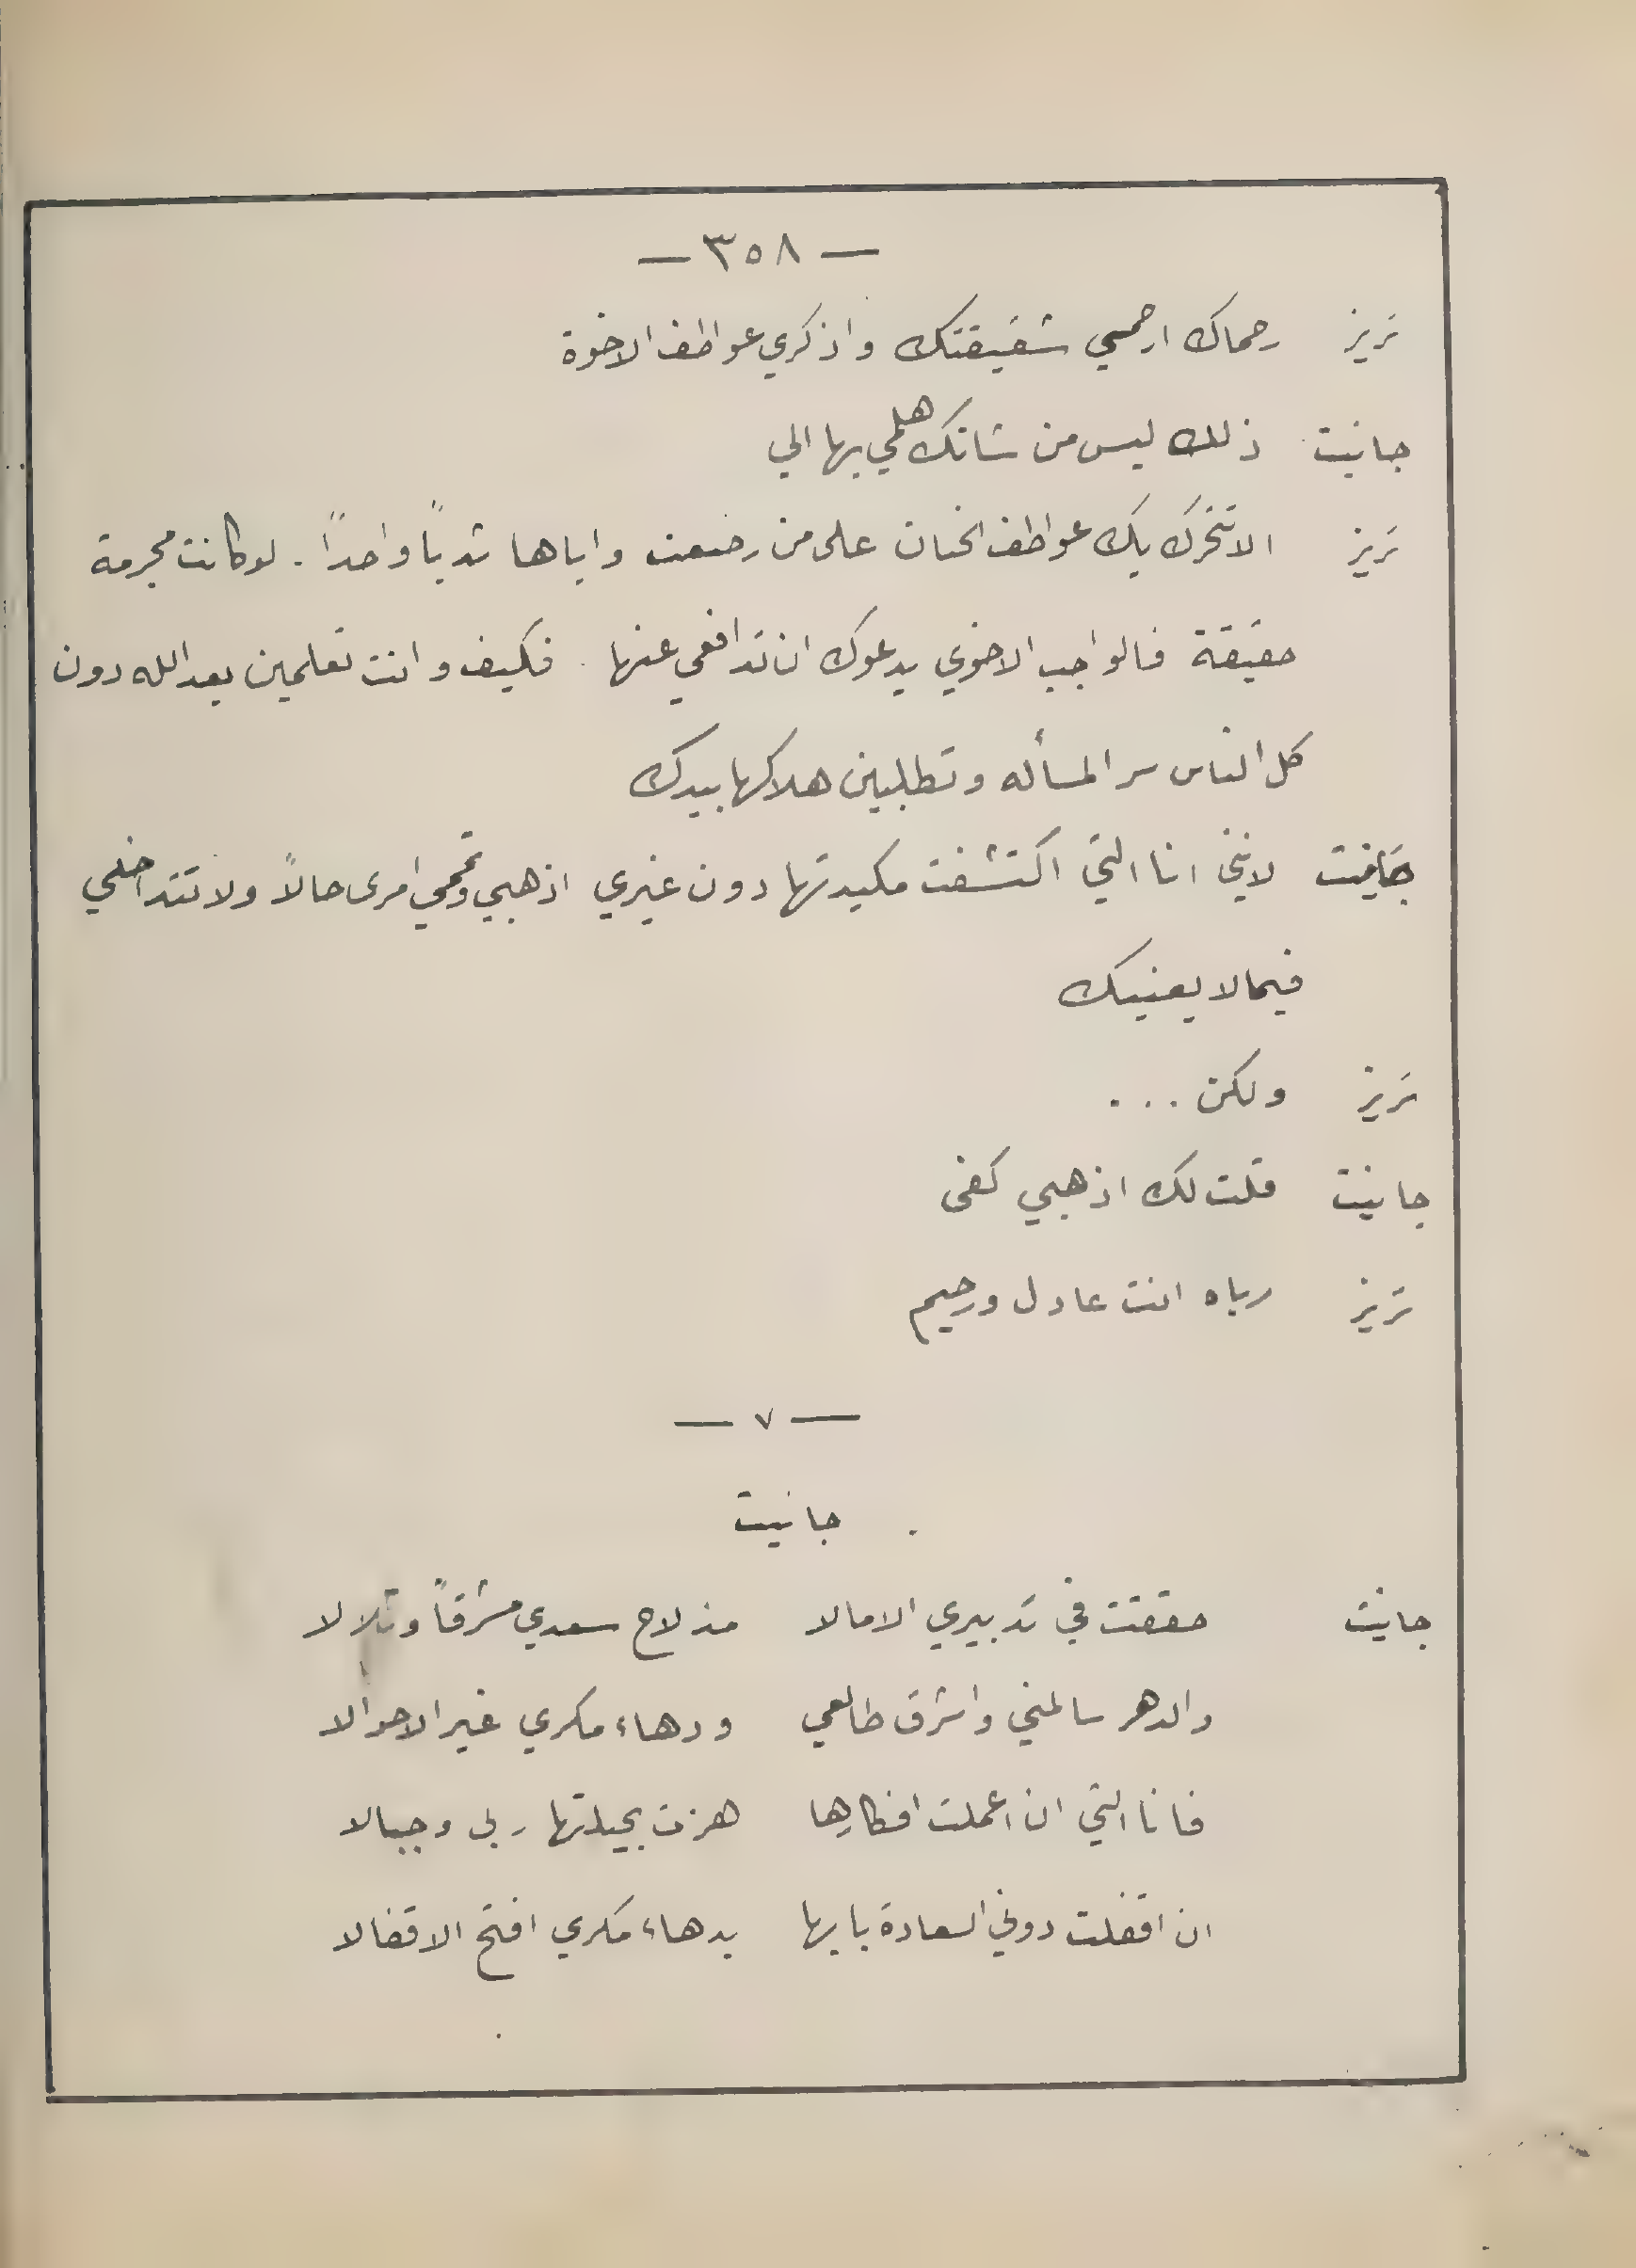 — ٣٥٨ —
تريز رحماك ارحمي شقيقتك واذكري عواطف الاخوة
جانيت ذلك ليس من شانك هلمي بها الي
تريز الا تتحرك بك عواطف الحنان على من رضعت واياها ثدياً واحداً . لو كانت مجرمة
حقيقة فالواجب الاخوي يدعوك ان تدافعي عنها . فكيف وانت تعلمين بعد الله دون
كل الناس سر المسأله وتطلبين هلاكها بيدك
جانيت لانني انا التي اكتشفت مكيدتها دون غيري اذهبي وتممي امرى حالاً ولا تتداخلي
فيما لا يعنيك
تريز ولكن . . .
جانيت قلت لك اذهبي كفى
تريز رباه انت عادل ورحيم
— ٧ —
جانيت
جانيت حققت في تدبيري الامالا مذ لاح سعدي مشرقاً وتلالا
والدهر سالمني واشرق طالعي ودهاء مكري غير الاحوالا
فانا التي ان اعملت افكارها هزت بحيلتها ربى وجبالا
ان اقفلت دوني السعادة بابها بدهاء مكري افتح الاقفالا